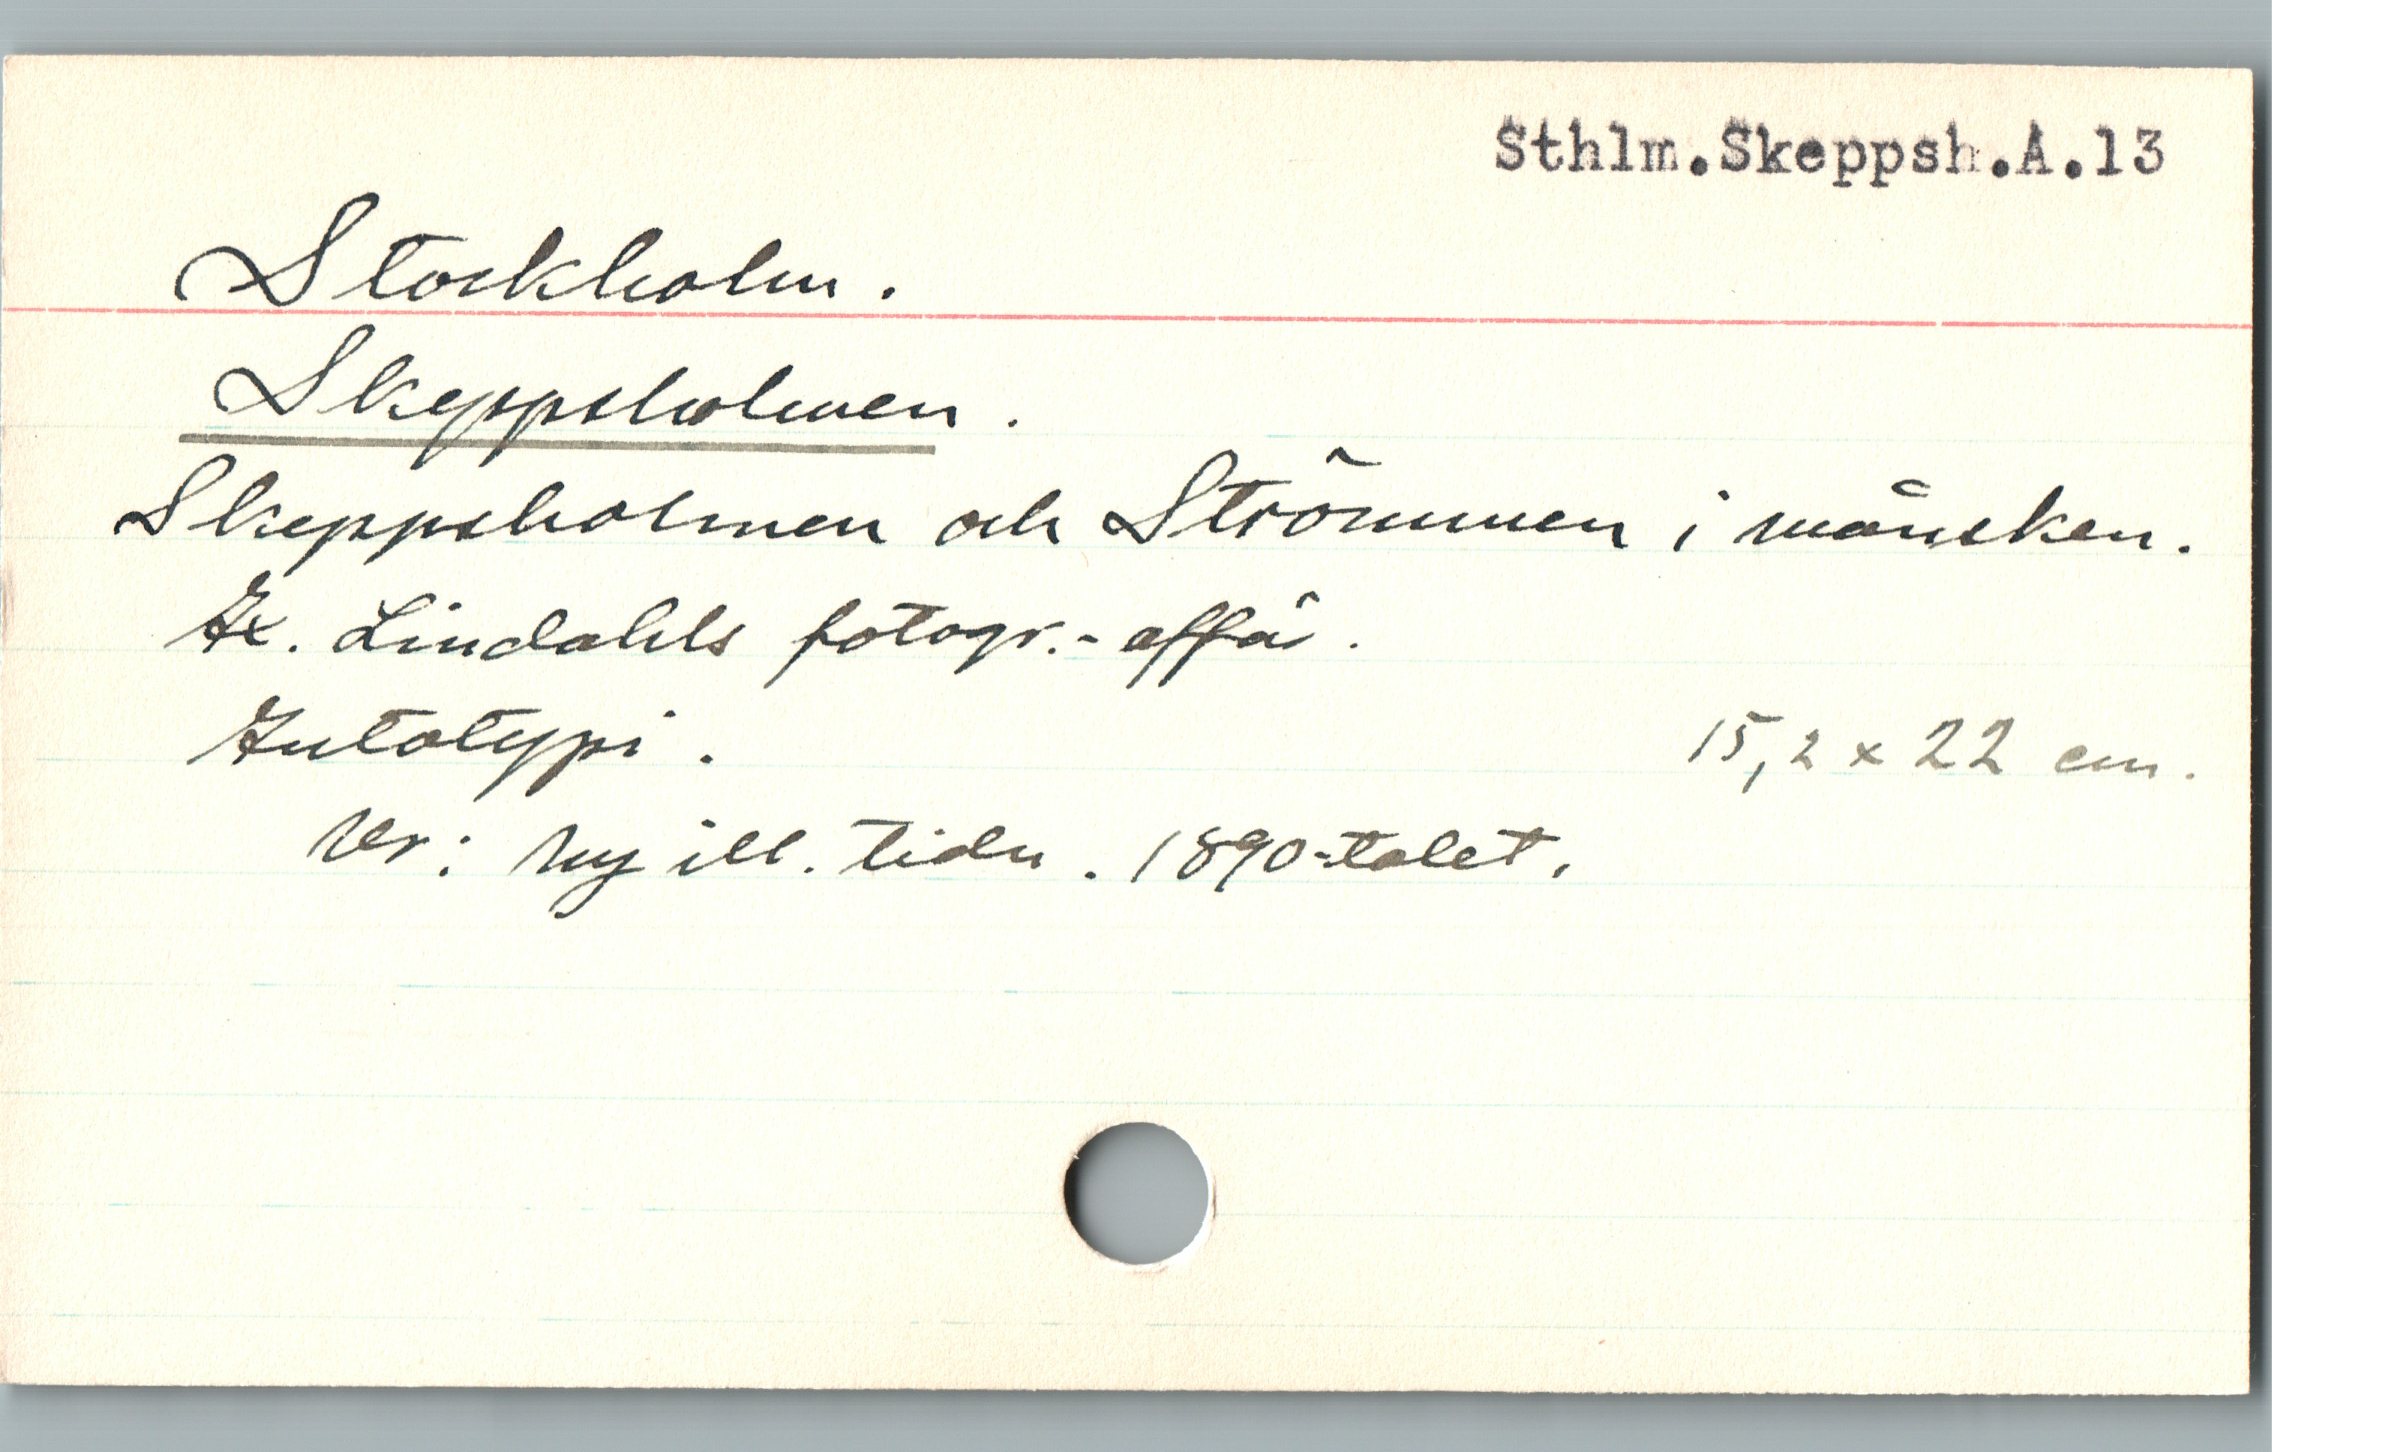 Sthlm.Skeppsh.A.13
Stockholm.
Skeppsholmen.
Skeppsholmen och Strömmen i månsken.
Ax. Lindahls fotogr.-affär.
Autotypi. 15,2 x 22 cm.
Ur: Ny ill. tidn. 1890-talet.